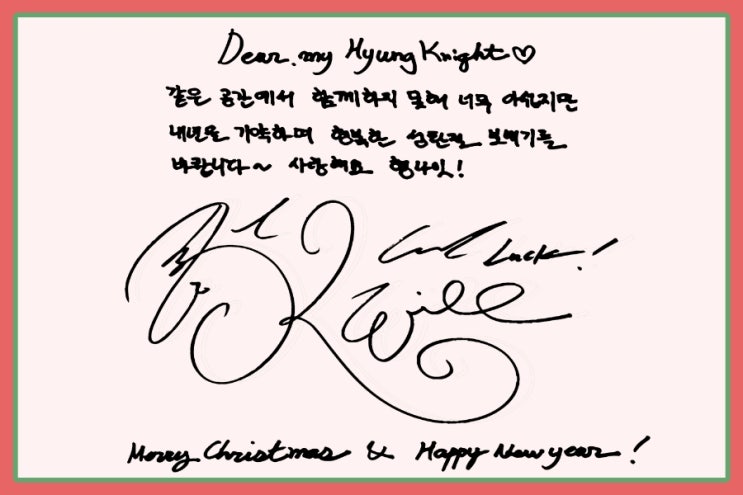 Dear. my Hyung Knight♡
같은 공간에서 함께하지 못해 너무 아쉽지만
내년을 기약하며 행복한 성탄절 보내기를
바랍니다~ 사랑해요 형나잇!
Good Luck!
K Will
Merry Christmas & Happy New year!